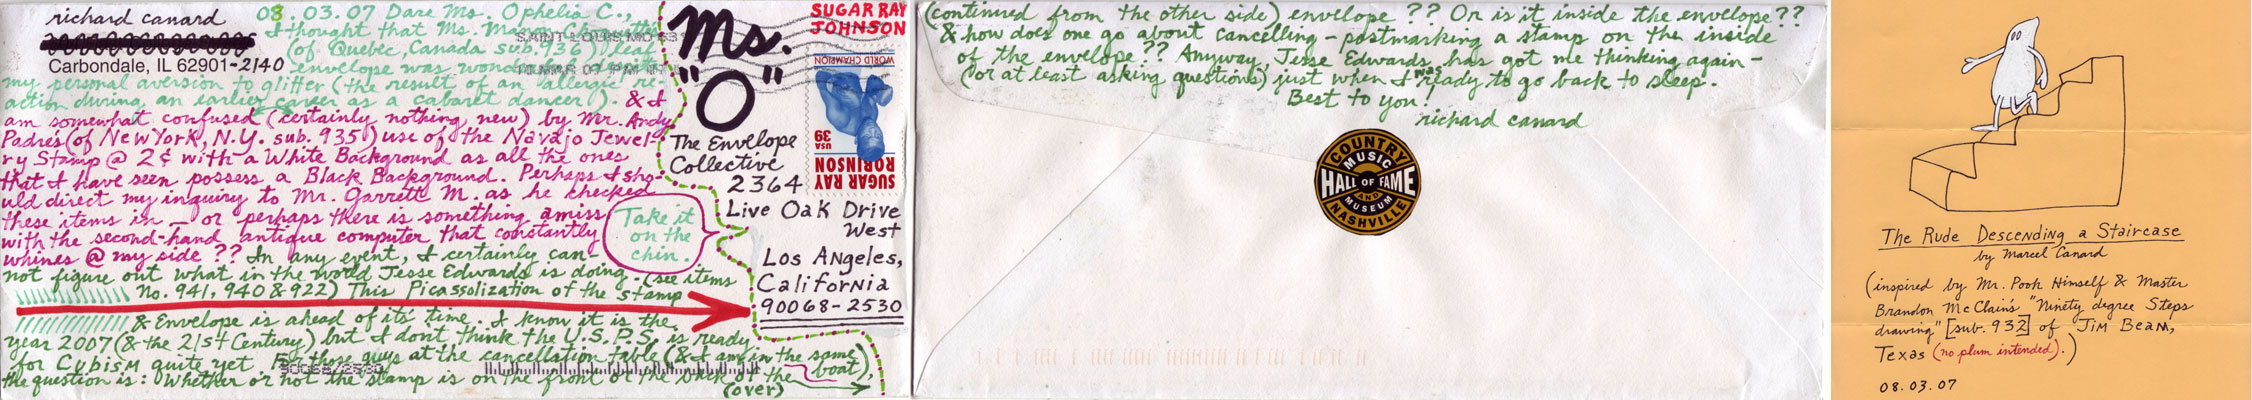 richard canard
Carbondale, IL 62901-2140
08.03.07 Dare Ms. Ophelia C.,
I thought that Ms.
(of Quebec, Canada sub. 936) leaf
envelope was
my personal aversion to glitter (the result of an "allergic" re-
action during an earlier career as a cabaret dancer!). & I
am somewhat confused (certainly nothing new) by Mr. Andy
Padre's (of New York, N.Y. sub. 935) use of the Navajo Jewel-
ry Stamp @ 2¢ with a White Background as all the ones
that I have seen possess a Black Background. Perhaps I sho-
uld direct my inquiry to Mr. Garrett M. as he checked
these items in — or perhaps there is something amiss
with the second-hand antique computer that constantly
whines @ my side ?? In any event, I certainly can-
not figure out what in the world Jesse Edwards is doing. (see items
no. 941, 940 & 922) This Picassolization of the stamp
& Envelope is ahead of its' time. I know it is the
year 2007 (& the 21st Century) but I don't think the U.S.P.S. is ready
for Cubism quite yet. For those guys at the cancellation table (& I am in the same
boat),
the question is: Whether or not the stamp is on the front or the back of the
(over)
Take it
on the
chin.
Ms.
"O"
The Envelope
Collective
2364
Live Oak Drive
West
Los Angeles,
California
90068-2530
SUGAR RAY
JOHNSON
WORLD CHAMPION
USA 39
SUGAR RAY
ROBINSON
SAINT LOUIS MO 63
90068/2530
(continued from the other side) envelope ?? Or is it inside the envelope??
& how does one go about cancelling - postmarking a stamp on the inside
of the envelope?? Anyway, Jesse Edwards has got me thinking again -
(or at least asking questions) just when I was ready to go back to sleep.
Best to you!
richard canard
COUNTRY
MUSIC
HALL OF FAME
AND
MUSEUM
NASHVILLE
The Rude Descending a Staircase
by Marcel Canard
(inspired by Mr. Pooh Himself & Master
Brandon McClain's "Ninety degree Steps
drawing" [sub. 932] of Jim Beam,
Texas (no plum intended).)
08.03.07